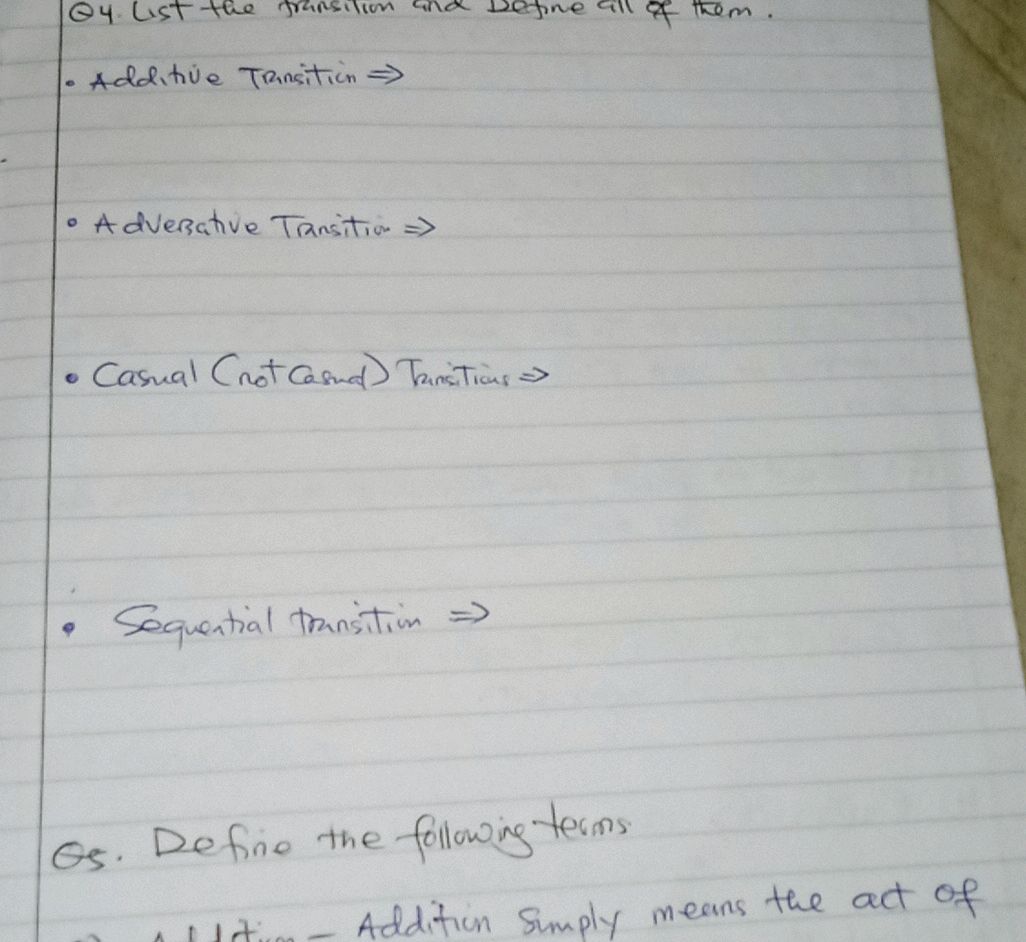 Q4. List the transition and Define all of them.
• Additive Transition ⇒
• Adversative Transition ⇒
• Casual (not Casual) Transitions ⇒
• Sequential transition ⇒
Q5. Define the following terms
Addition – Addition Simply means the act of